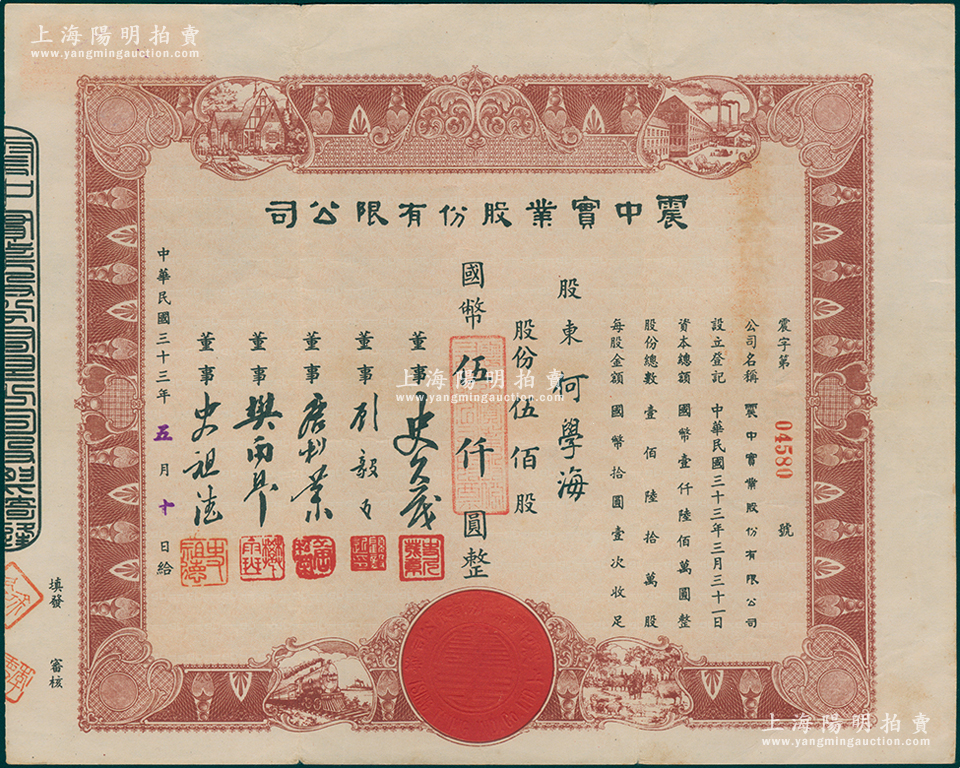 上海陽明拍賣
www.yangmingauction.com
震中實業股份有限公司
震字第 04580 號
公司名稱 震中實業股份有限公司
設立登記 中華民國三十三年三月三十一日
資本總額 國幣壹仟陸佰萬圓整
股份總數 壹佰陸拾萬股
每股金額 國幣拾圓壹次收足
股東 何學海
股份伍佰股
國幣 伍仟 圓整
董事 史久茂
董事
董事
董事
董事 史祖德
中華民國三十三年 五 月 十 日給
填發
審核
上海陽明拍賣
www.yangmingauction.com
上海陽明拍賣
www.yangmingauction.com